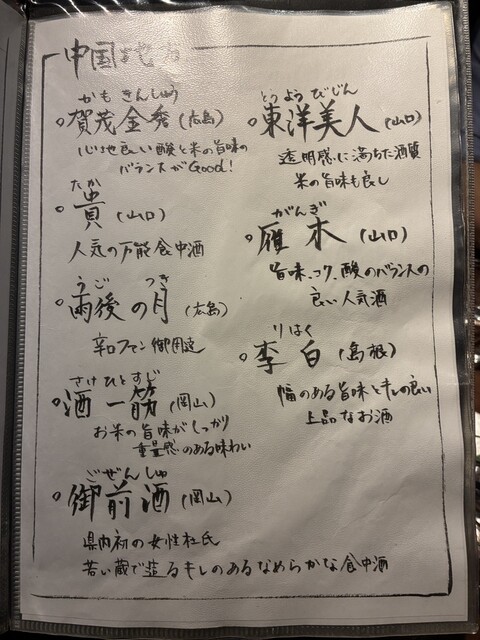 中国地方
かも きんしゅう
○賀茂金秀(広島)
心地良い酸と米の旨味の
バランスがGood!
たか
○貴(山口)
人気の万能食中酒
うご つき
○雨後の月(広島)
辛口ファン御用達
さけひとすじ
○酒一筋(岡山)
お米の旨味がしっかり
重量感のある味わい
ごぜんしゅ
○御前酒(岡山)
県内初の女性杜氏
若い蔵で造るキレのあるなめらかな食中酒
とうようびじん
○東洋美人(山口)
透明感に満ちた酒質
米の旨味も良し
がんぎ
○雁木(山口)
旨味、コク、酸のバランスの
良い人気酒
りはく
○李白(島根)
幅のある旨味とキレの良い
上品なお酒